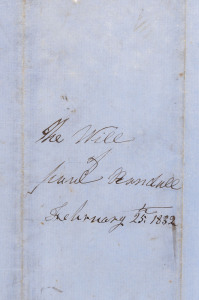 The Will
of
Randall
February 25th 1832